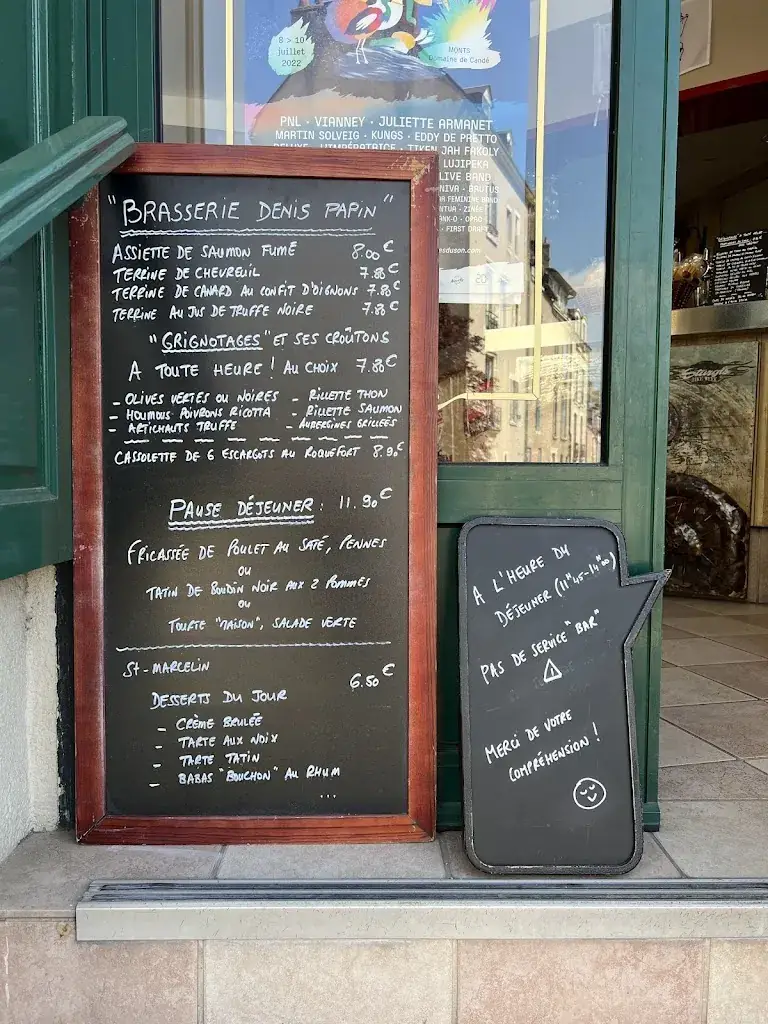 8 > 10
juillet
2022
MONTS
Domaine de Candé
PNL · VIANNEY · JULIETTE ARMANET
MARTIN SOLVEIG · KUNGS · EDDY DE PRETTO
TIKEN JAH FAKOLY
LUJIPEKA
LIVE BAND
BRUTUS
FEMININE BAND
FIRST DRAFT
"BRASSERIE DENIS PAPIN"
ASSIETTE DE SAUMON FUMÉ 8.00€
TERRINE DE CHEVREUIL 7.80€
TERRINE DE CANARD AU CONFIT D'OIGNONS 7.80€
TERRINE AU JUS DE TRUFFE NOIRE 7.80€
"GRIGNOTAGES" ET SES CROÛTONS
A TOUTE HEURE ! AU CHOIX 7.80€
- OLIVES VERTES OU NOIRES - RILLETTE THON
- HOUMOUS POIVRONS RICOTTA - RILLETTE SAUMON
- ARTICHAUTS TRUFFE - AUBERGINES GRILLÉES
CASSOLETTE DE 6 ESCARGOTS AU ROQUEFORT 8.90€
PAUSE DÉJEUNER : 11.90€
FRICASSÉE DE POULET AU SATÉ, PENNES
OU
TATIN DE BOUDIN NOIR AUX 2 POMMES
OU
TOURTE "MAISON", SALADE VERTE
ST-MARCELIN
6.50€
DESSERTS DU JOUR
- CRÈME BRULÉE
- TARTE AUX NOIX
- TARTE TATIN
- BABAS "BOUCHON" AU RHUM
...
A L'HEURE DU
DÉJEUNER (11H45-14H00)
PAS DE SERVICE "BAR"
!
MERCI DE VOTRE
COMPRÉHENSION !
Sturgis